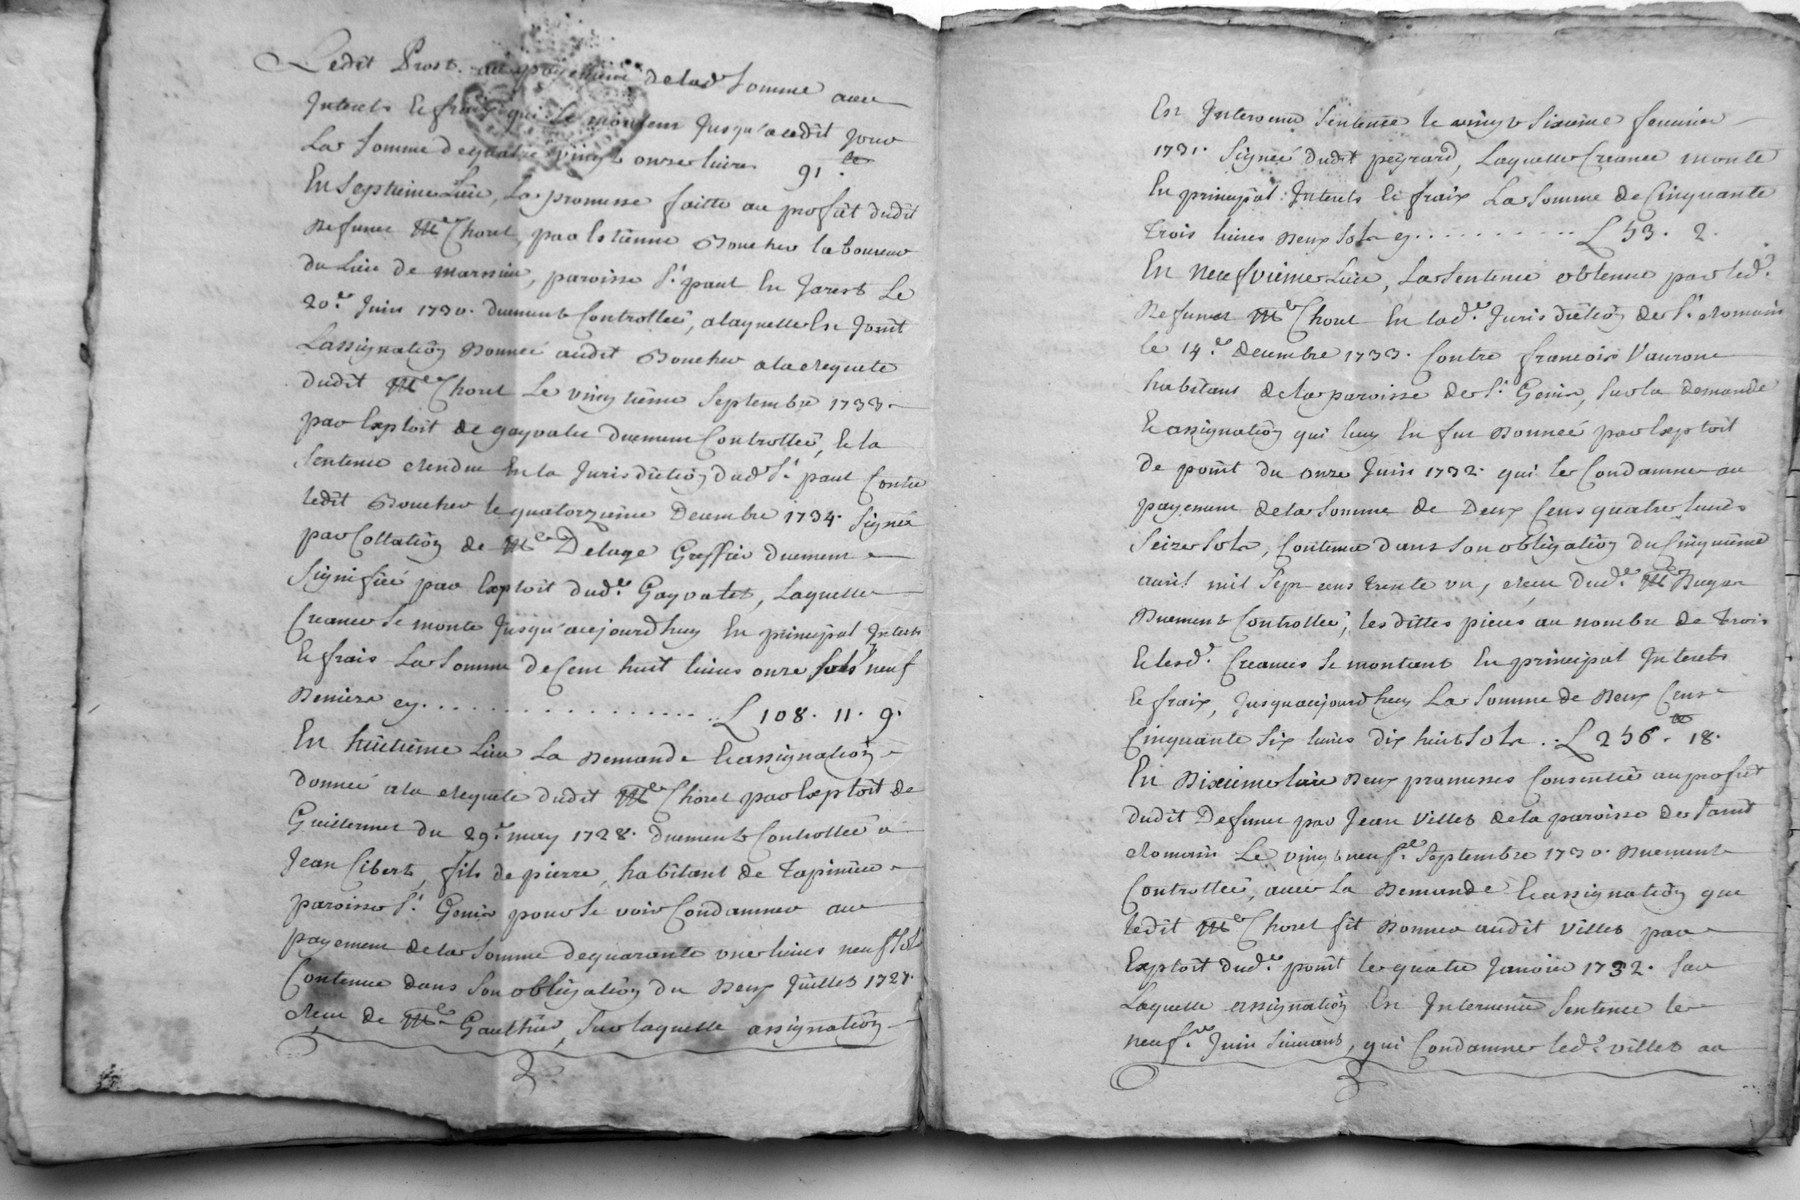 Ledit Prost au payement de lad. somme avec
Interets et fraix qui se montent jusqu'a cedit jour
La somme de quatre vingt onze livres 91.tt
En septieme Lieu, La promesse faitte au profit dudit
Defunct Me Choret par Estienne Boucher laboureur
du Lieu de marnieu, paroisse St. paul En Jarest Le
20.e Juin 1730. duement Controllée, a laquelle Est Joint
Lassignation Donnée audit Boucher a la requete
dudit Me Choret Le vingtieme Septembre 1733.
par Exploit de gayvalet duement Controllée, Et la
Sentence rendue En la Jurisdiction dud. St. paul Contre
ledit Boucher le quatorzieme Decembre 1734. Signée
par Collation de Me Delage Greffier duement
Signifiée par Exploit dud. Gayvalet, Laquelle
Creance se monte Jusqu'aujourdhuy En principal Interets
Et frais La somme de Cent huit livres onze sols neuf
Deniers cy. . . . . . . . . . . . . . . . . L 108. 11. 9.
En huitieme Lieu La Demande Et assignation
donnée a la requete dudit Me Choret par Exploit de
Guillermet du 29.e may 1728. duement Controllée a
Jean Cibert, fils de pierre, habitant de Tapinieu
paroisse St. Genis pour se voir Condamner au
payement de la somme de quarante une livres neuf sols
Contenue dans son obligation du Deux Juillet 1727.
receu de Me Gaulthier, Sur laquelle assignation
Est Intervenu Sentence le vingt Sixieme fevrier
1731. Signée dudit peyrard, Laquelle Creance monte
En principal Interets Et fraix La somme de Cinquante
trois livres Deux sols cy. . . . . . . . . . . L 53. 2.
En Neufvieme Lieu, La Sentence obtenue par led.
Defunct Me Choret En lad. Jurisdiction de St. romain
le 14.e decembre 1733. Contre francois Vauron
habitant de la paroisse de St. Genis, Sur la demande
Et assignation qui luy En fut Donnée par Exploit
de point du onze Juin 1732. qui le Condamne au
payement de la somme de Deux Cens quatre livres
Seize sols, Contenue dans son obligation du Cinquieme
avril mil Sept cens trente un, receu dud. Me
Duement Controllée, les dittes pieces au nombre de trois
Et lesd. Creances se montent En principal Interets
Et fraix, Jusquaujourdhuy La somme de Deux Cens
Cinquante Six livres dix huit sols . . L 256.tt 18.
En Dixieme lieu Deux promesses Consenties au profit
dudit Defunct par Jean Villet de la paroisse de Saint
romain Le vingt neuf.e Septembre 1730. Duement
Controllée, avec La Demande Et assignation que
ledit Me Choret fit Donner audit Villet par
Exploit dud. point le quatre Janvier 1732. Sur
Laquelle assignation Est Intervenue Sentence le
neuf.e Juin Suivant, qui Condamne led. villet au